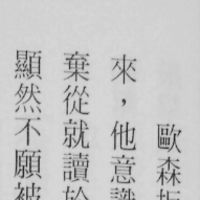 歐森
來，他意識
棄從就讀於
顯然不願被